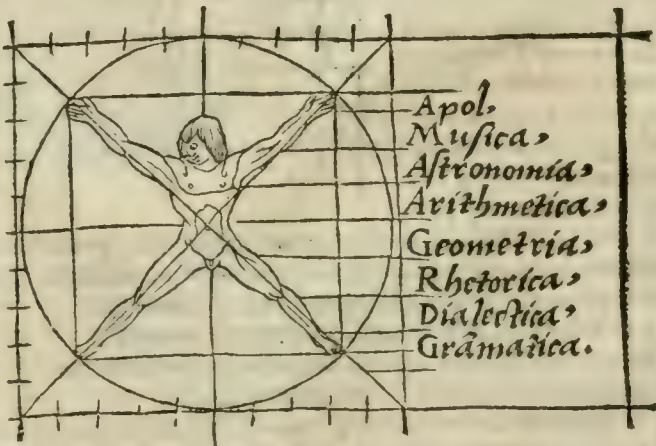 Apol,
Musica,
Astronomia,
Arithmetica,
Geometria,
Rhetorica,
Dialectica,
Grãmatica.